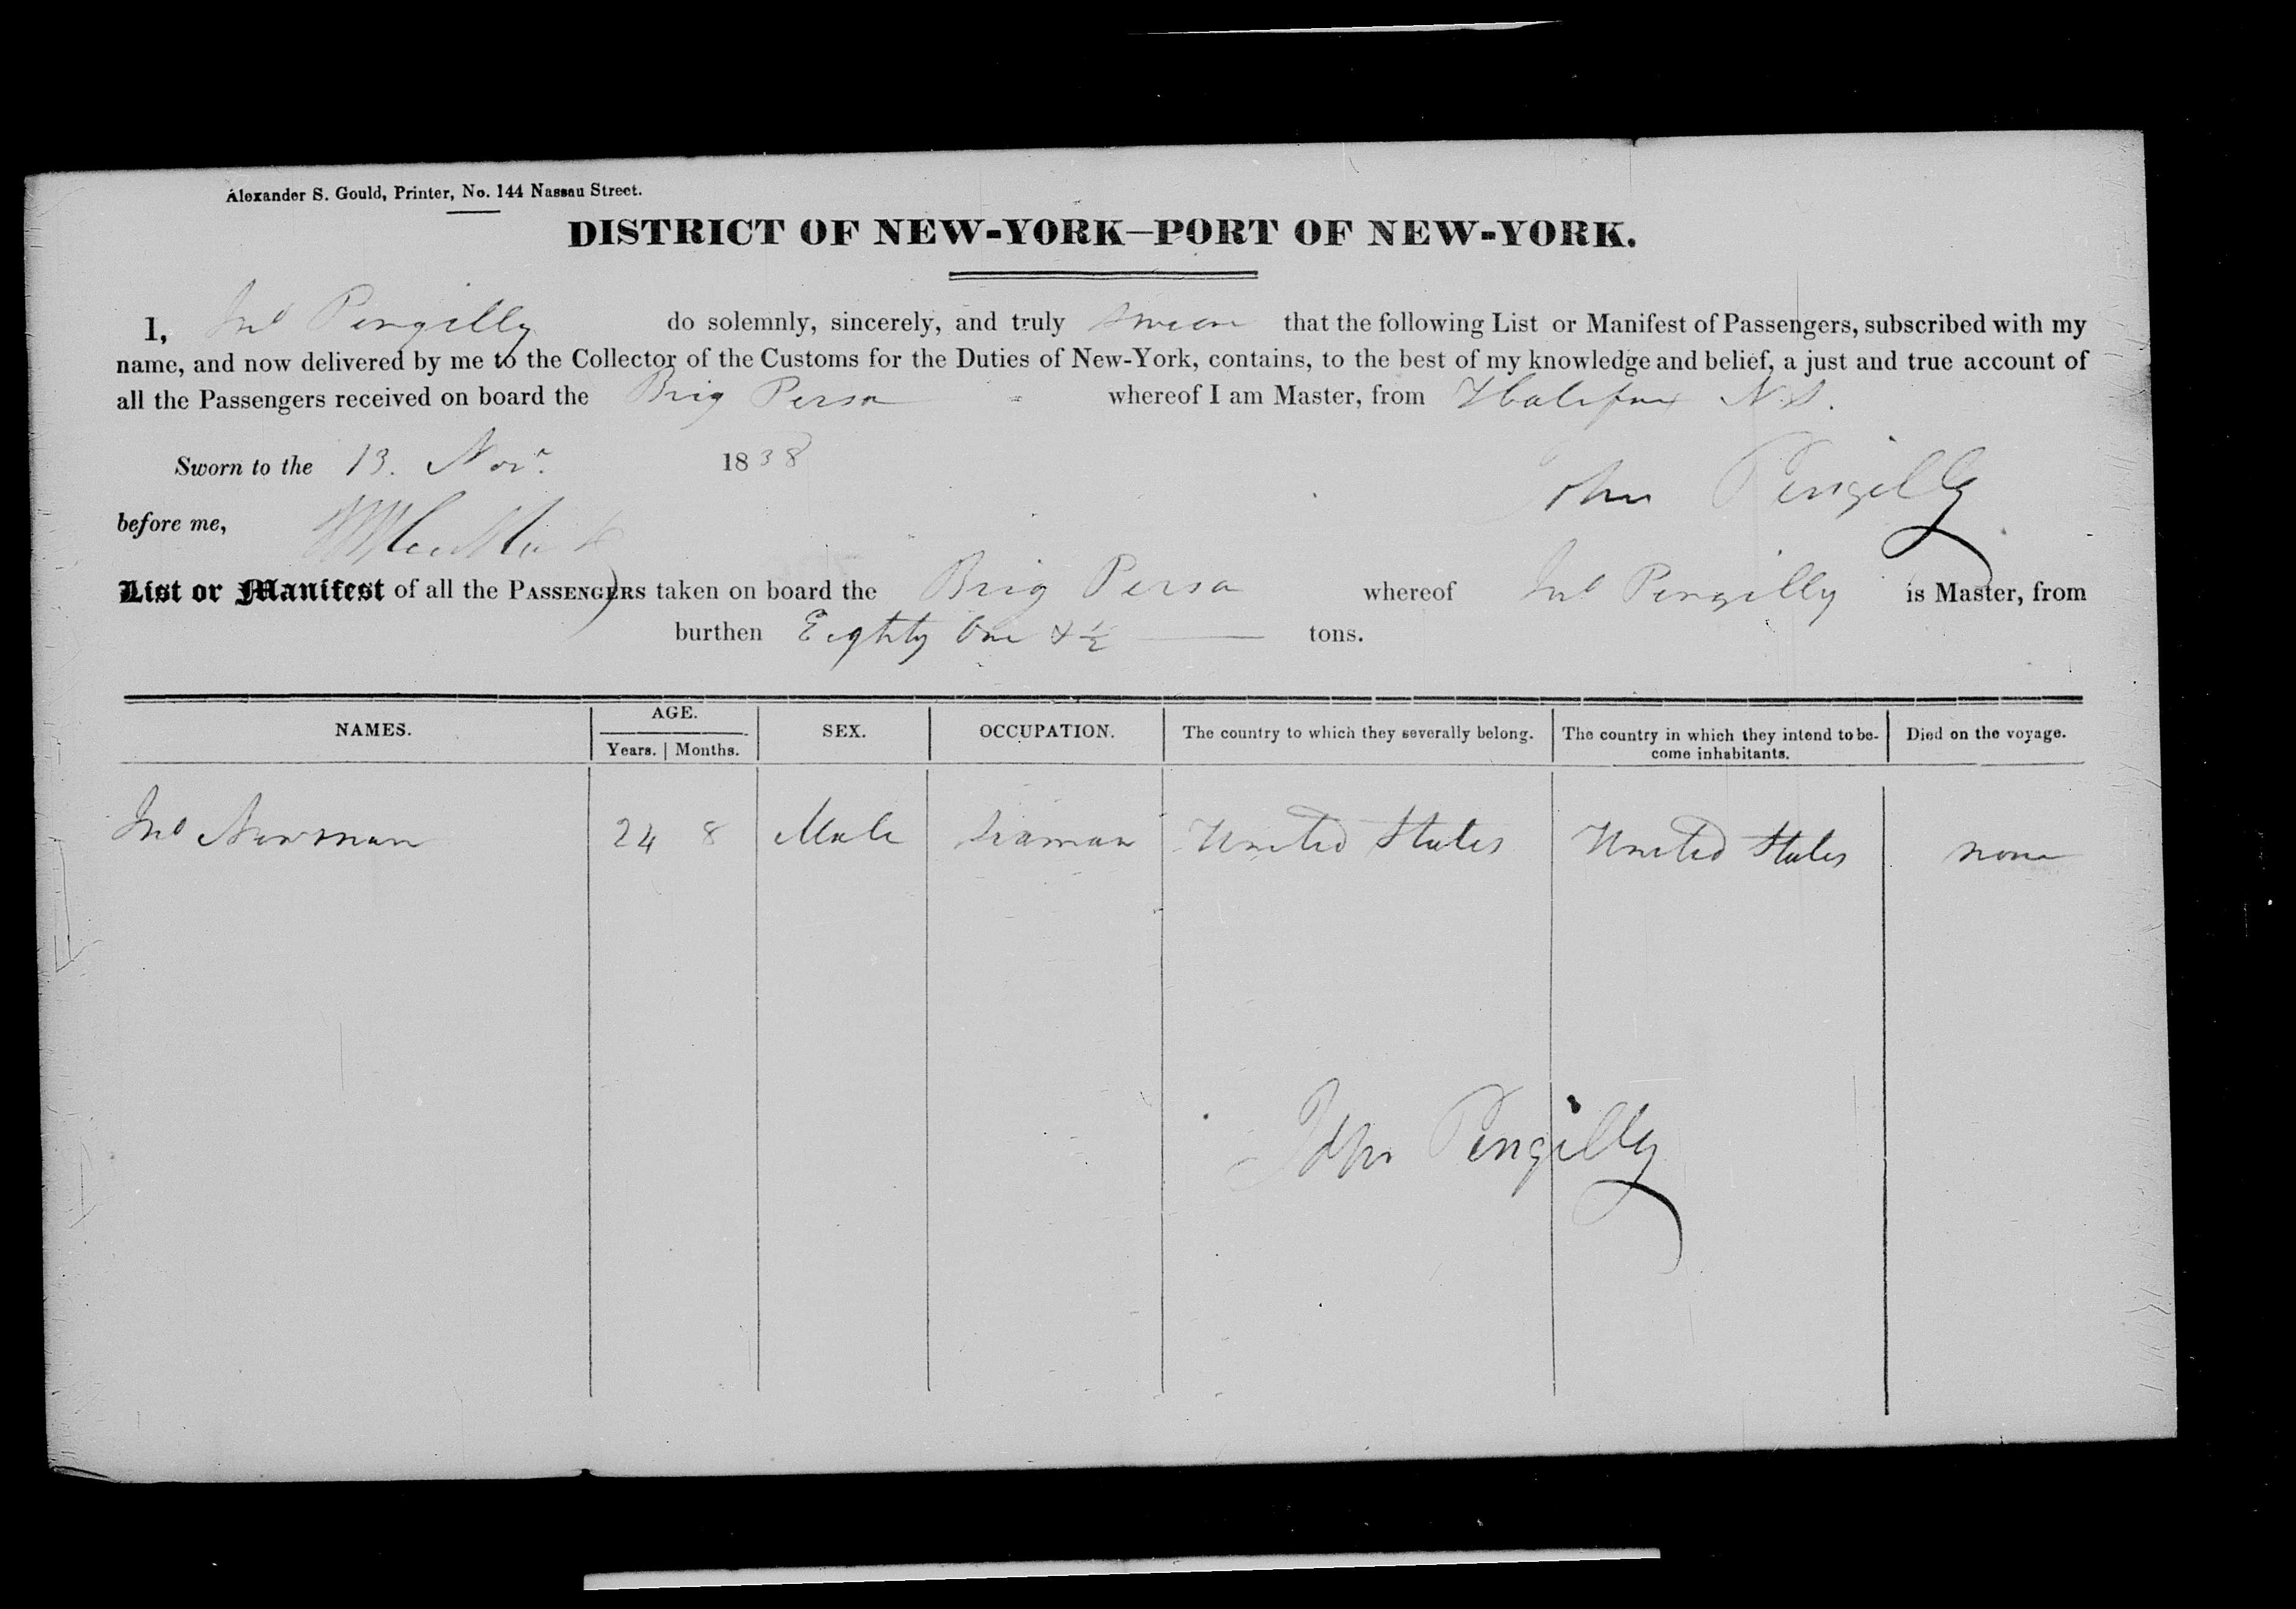 Alexander S. Gould, Printer, No. 144 Nassau Street.
DISTRICT OF NEW-YORK—PORT OF NEW-YORK.
I, Jno Pengilly do solemnly, sincerely, and truly swear that the following List or Manifest of Passengers, subscribed with my
name, and now delivered by me to the Collector of the Customs for the Duties of New-York, contains, to the best of my knowledge and belief, a just and true account of
all the Passengers received on board the Brig Persa whereof I am Master, from Halifax N.S.
Sworn to the 13. Novr. 1838
John Pengilly
before me,
List or Manifest of all the PASSENGERS taken on board the Brig Persa whereof Jno Pengilly is Master, from
burthen Eighty One & ½ tons.
NAMES. AGE. SEX. OCCUPATION. The country to which they severally belong. The country in which they intend to be- Died on the voyage.
Years. Months. come inhabitants.
Jno Newman 24 8 Male Seaman United States United States none
John Pengilly